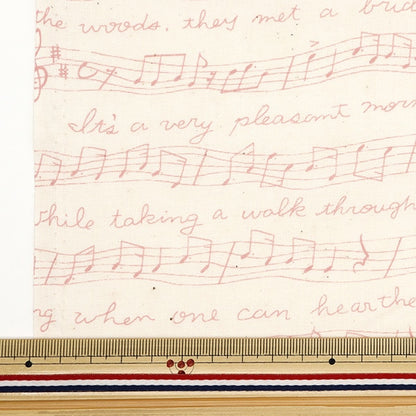 the woods, they met a
It's a very pleasant
while taking a walk through
when one can hear the